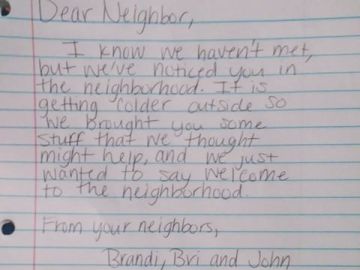 Dear Neighbor,
I know we haven't met,
but we've noticed you in
the neighborhood. It is
getting colder outside so
we brought you some
stuff that we thought
might help, and we just
wanted to say welcome
to the neighborhood.
From your neighbors,
Brandi, Bri and John